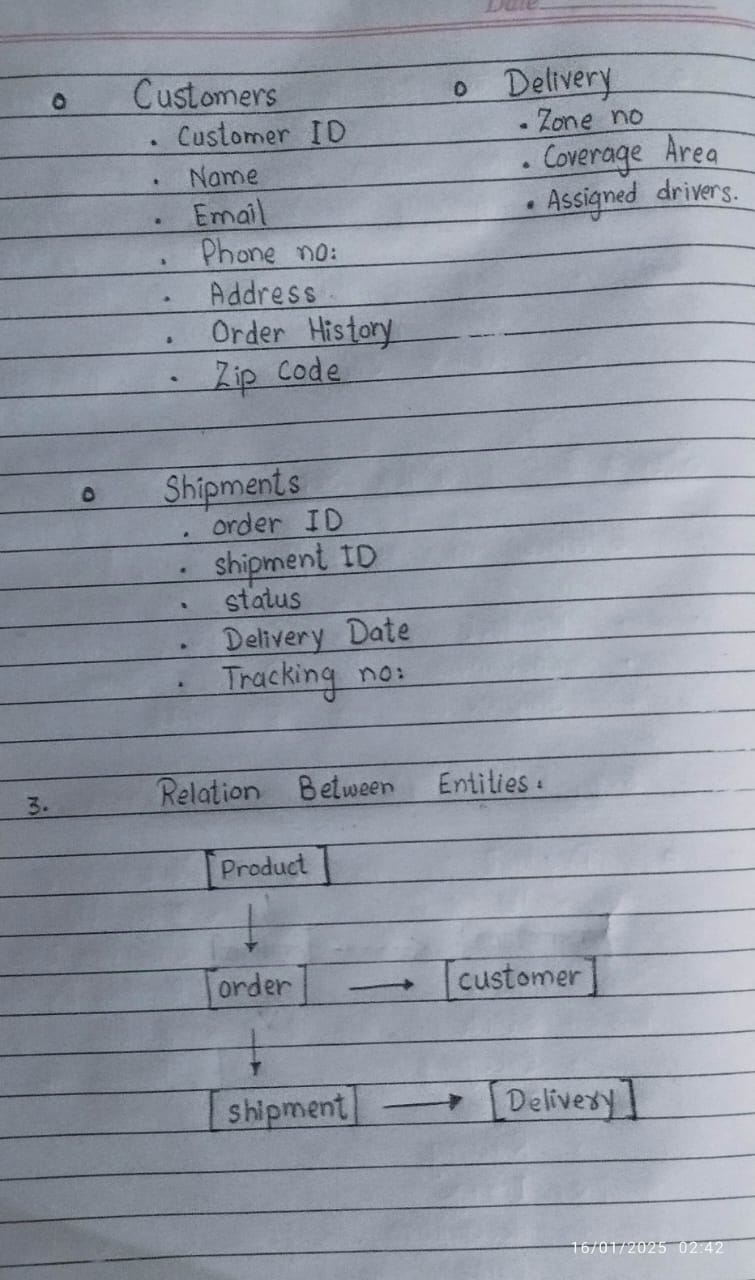 Date
o Customers
. Customer ID
. Name
. Email
. Phone no:
. Address
. Order History
. Zip Code
o Delivery
. Zone no
. Coverage Area
. Assigned drivers.
o Shipments
. order ID
. shipment ID
. status
. Delivery Date
. Tracking no:
3. Relation Between Entities.
[Product]
↓
[order] → [customer]
↓
[shipment] → [Delivery]
16/01/2025 02:42